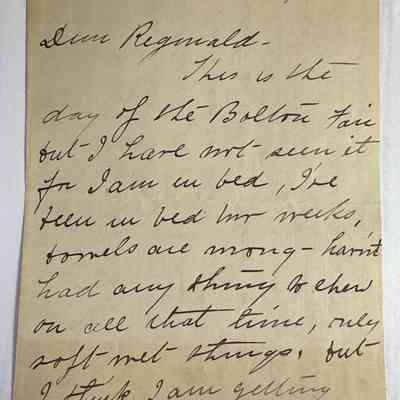 Dear Reginald-
This is the
day of the Bolton Fair
but I have not seen it
for I am in bed, I've
been in bed two weeks,
bowels are wrong - havn't
had any thing to chew
on all that time, only
soft wet things. but
I think I am getting